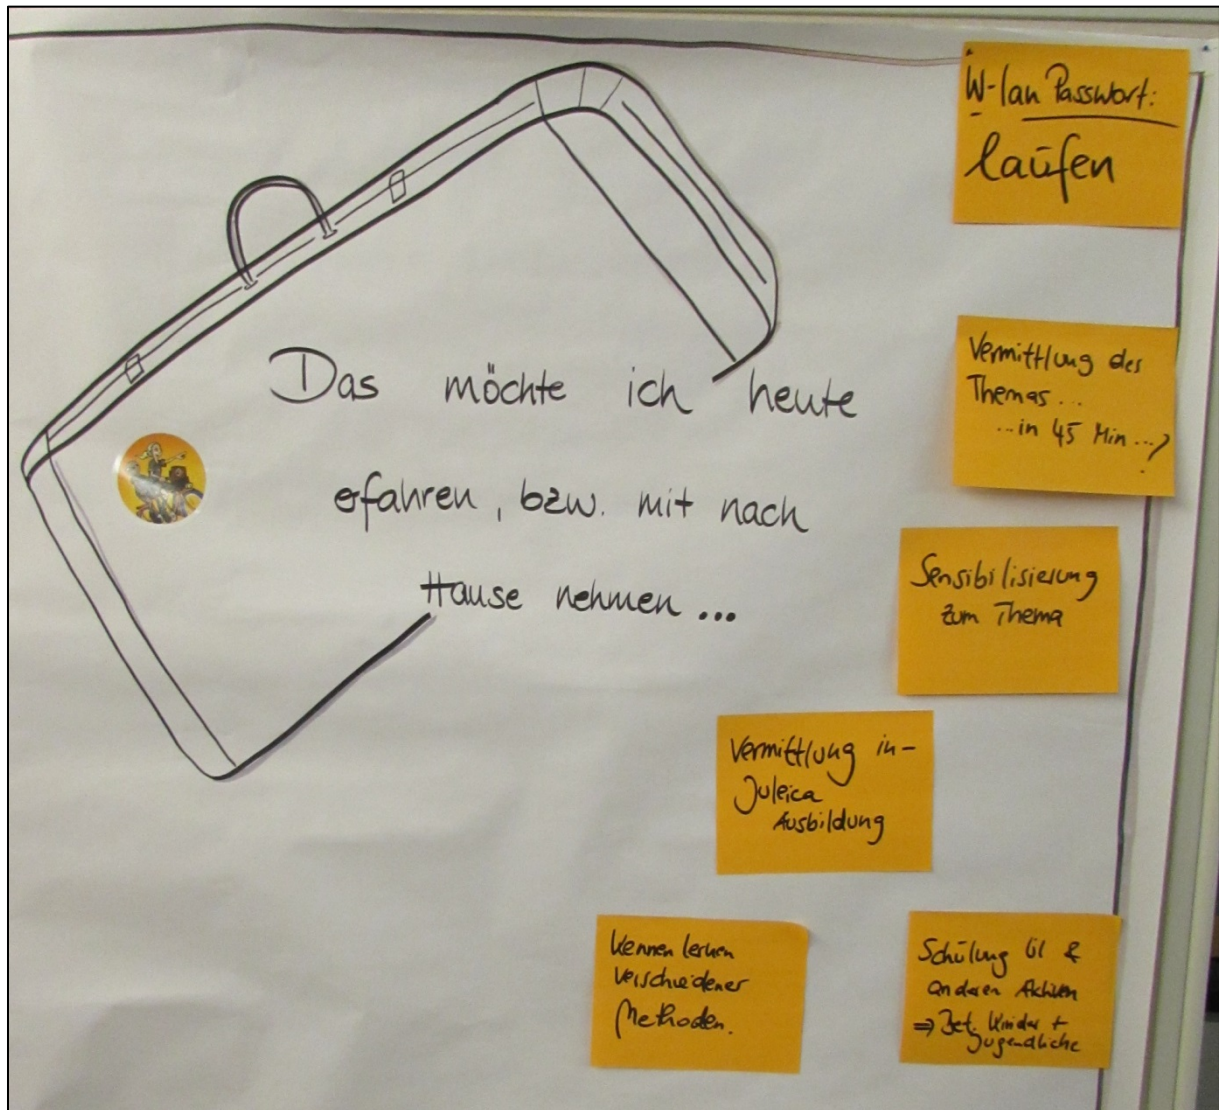 Das möchte ich heute
erfahren, bzw. mit nach
Hause nehmen...
W-lan Passwort:
laufen
Vermittlung des
Themas...
...in 45 Min...?
Sensibilisierung
zum Thema
Vermittlung in-
Juleica
Ausbildung
Kennen lernen
verschiedener
Methoden.
Schulung ÜL &
anderen Aktiven
⇒ Bet. Kinder +
Jugendliche